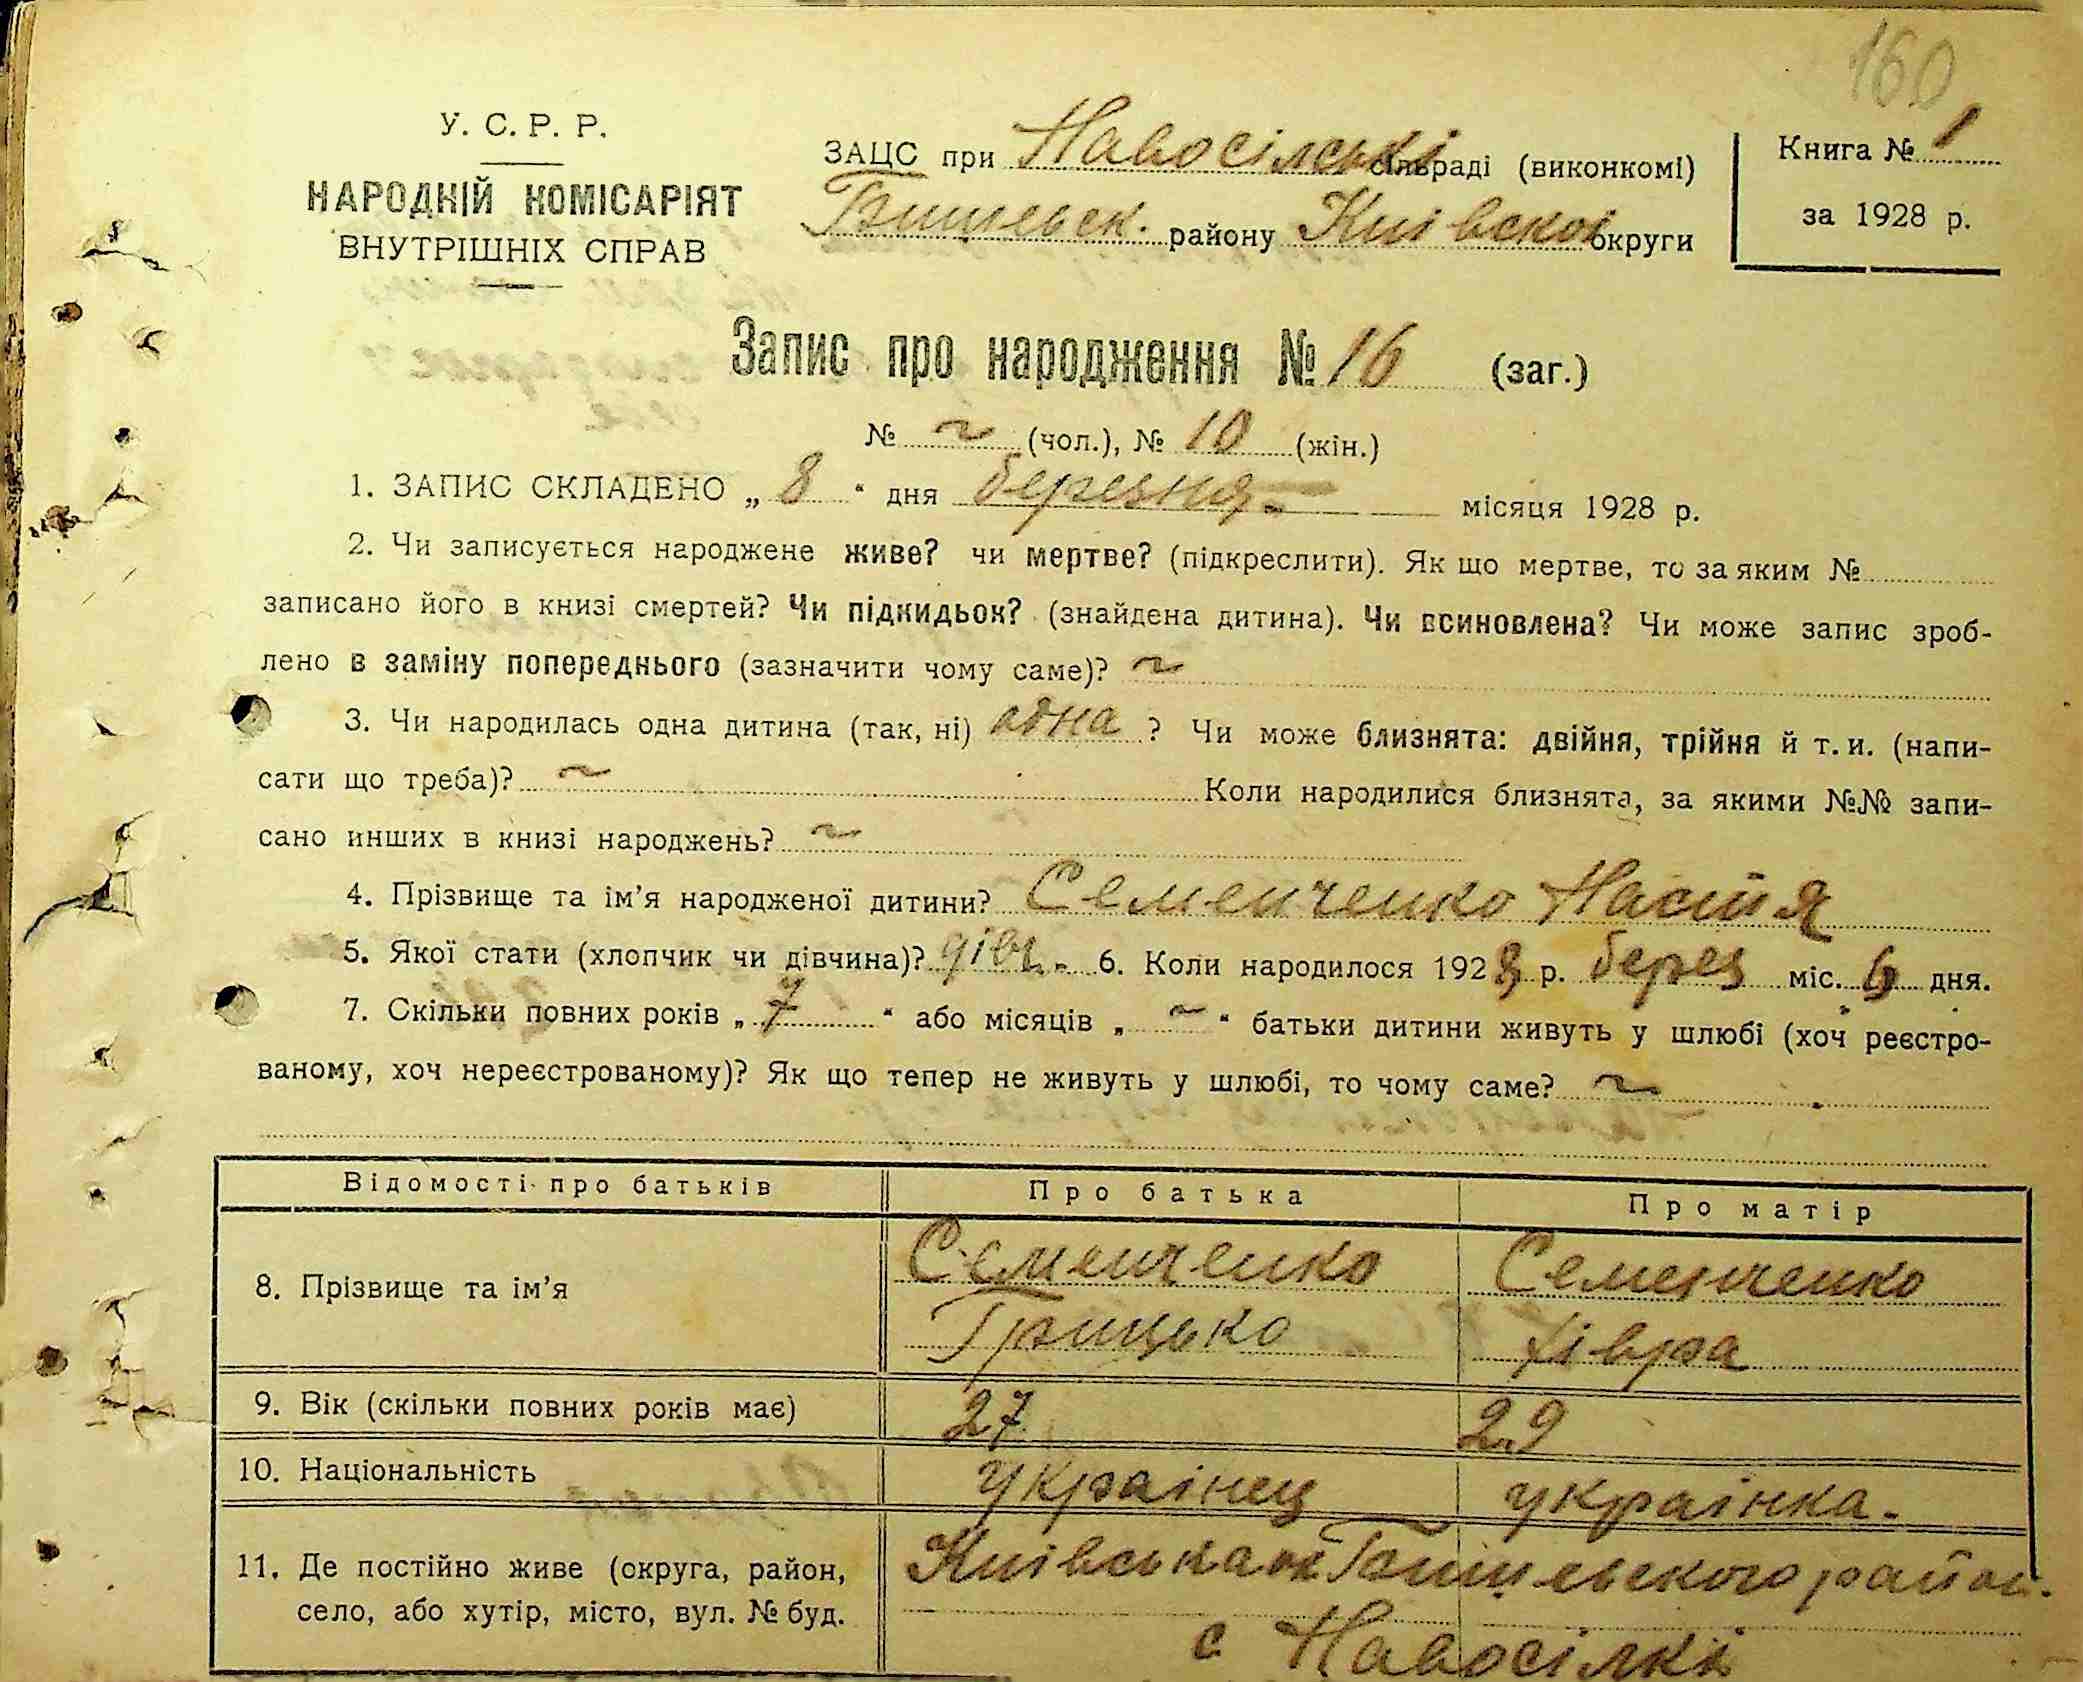 160
У. С. Р. Р.
НАРОДНІЙ КОМІСАРІЯТ
ВНУТРІШНІХ СПРАВ
ЗАЦС при Новосілські сільраді (виконкомі)
Бишевск. району Київскої округи
Книга № 1
за 1928 р.
Запис про народження № 16 (заг.)
№ ~ (чол.), № 10 (жін.)
1. ЗАПИС СКЛАДЕНО „ 8 “ дня березня – місяця 1928 р.
2. Чи записується народжене живе? чи мертве? (підкреслити). Як що мертве, то за яким №
записано його в книзі смертей? Чи підкидьок? (знайдена дитина). Чи всиновлена? Чи може запис зроб-
лено в заміну попереднього (зазначити чому саме)? ~
3. Чи народилась одна дитина (так, ні) одна ? Чи може близнята: двійня, трійня й т. и. (напи-
сати що треба)? ~ Коли народилися близнята, за якими №№ запи-
сано инших в книзі народжень? ~
4. Прізвище та ім’я народженої дитини? Семенченко Настя
5. Якої стати (хлопчик чи дівчина)? дівч. 6. Коли народилося 1928 р. берез міс. 6 дня.
7. Скільки повних років „ 7 “ або місяців „ ~ “ батьки дитини живуть у шлюбі (хоч реєстро-
ваному, хоч нереєстрованому)? Як що тепер не живуть у шлюбі, то чому саме? ~
Відомості про батьків Про батька Про матір
8. Прізвище та ім’я Семенченко Семенченко
Грицько Хівра
9. Вік (скільки повних років має) 27 29
10. Національність українец українка.
11. Де постійно живе (округа, район, Київська ок Бишевского район.
село, або хутір, місто, вул. № буд. с Новосілкі